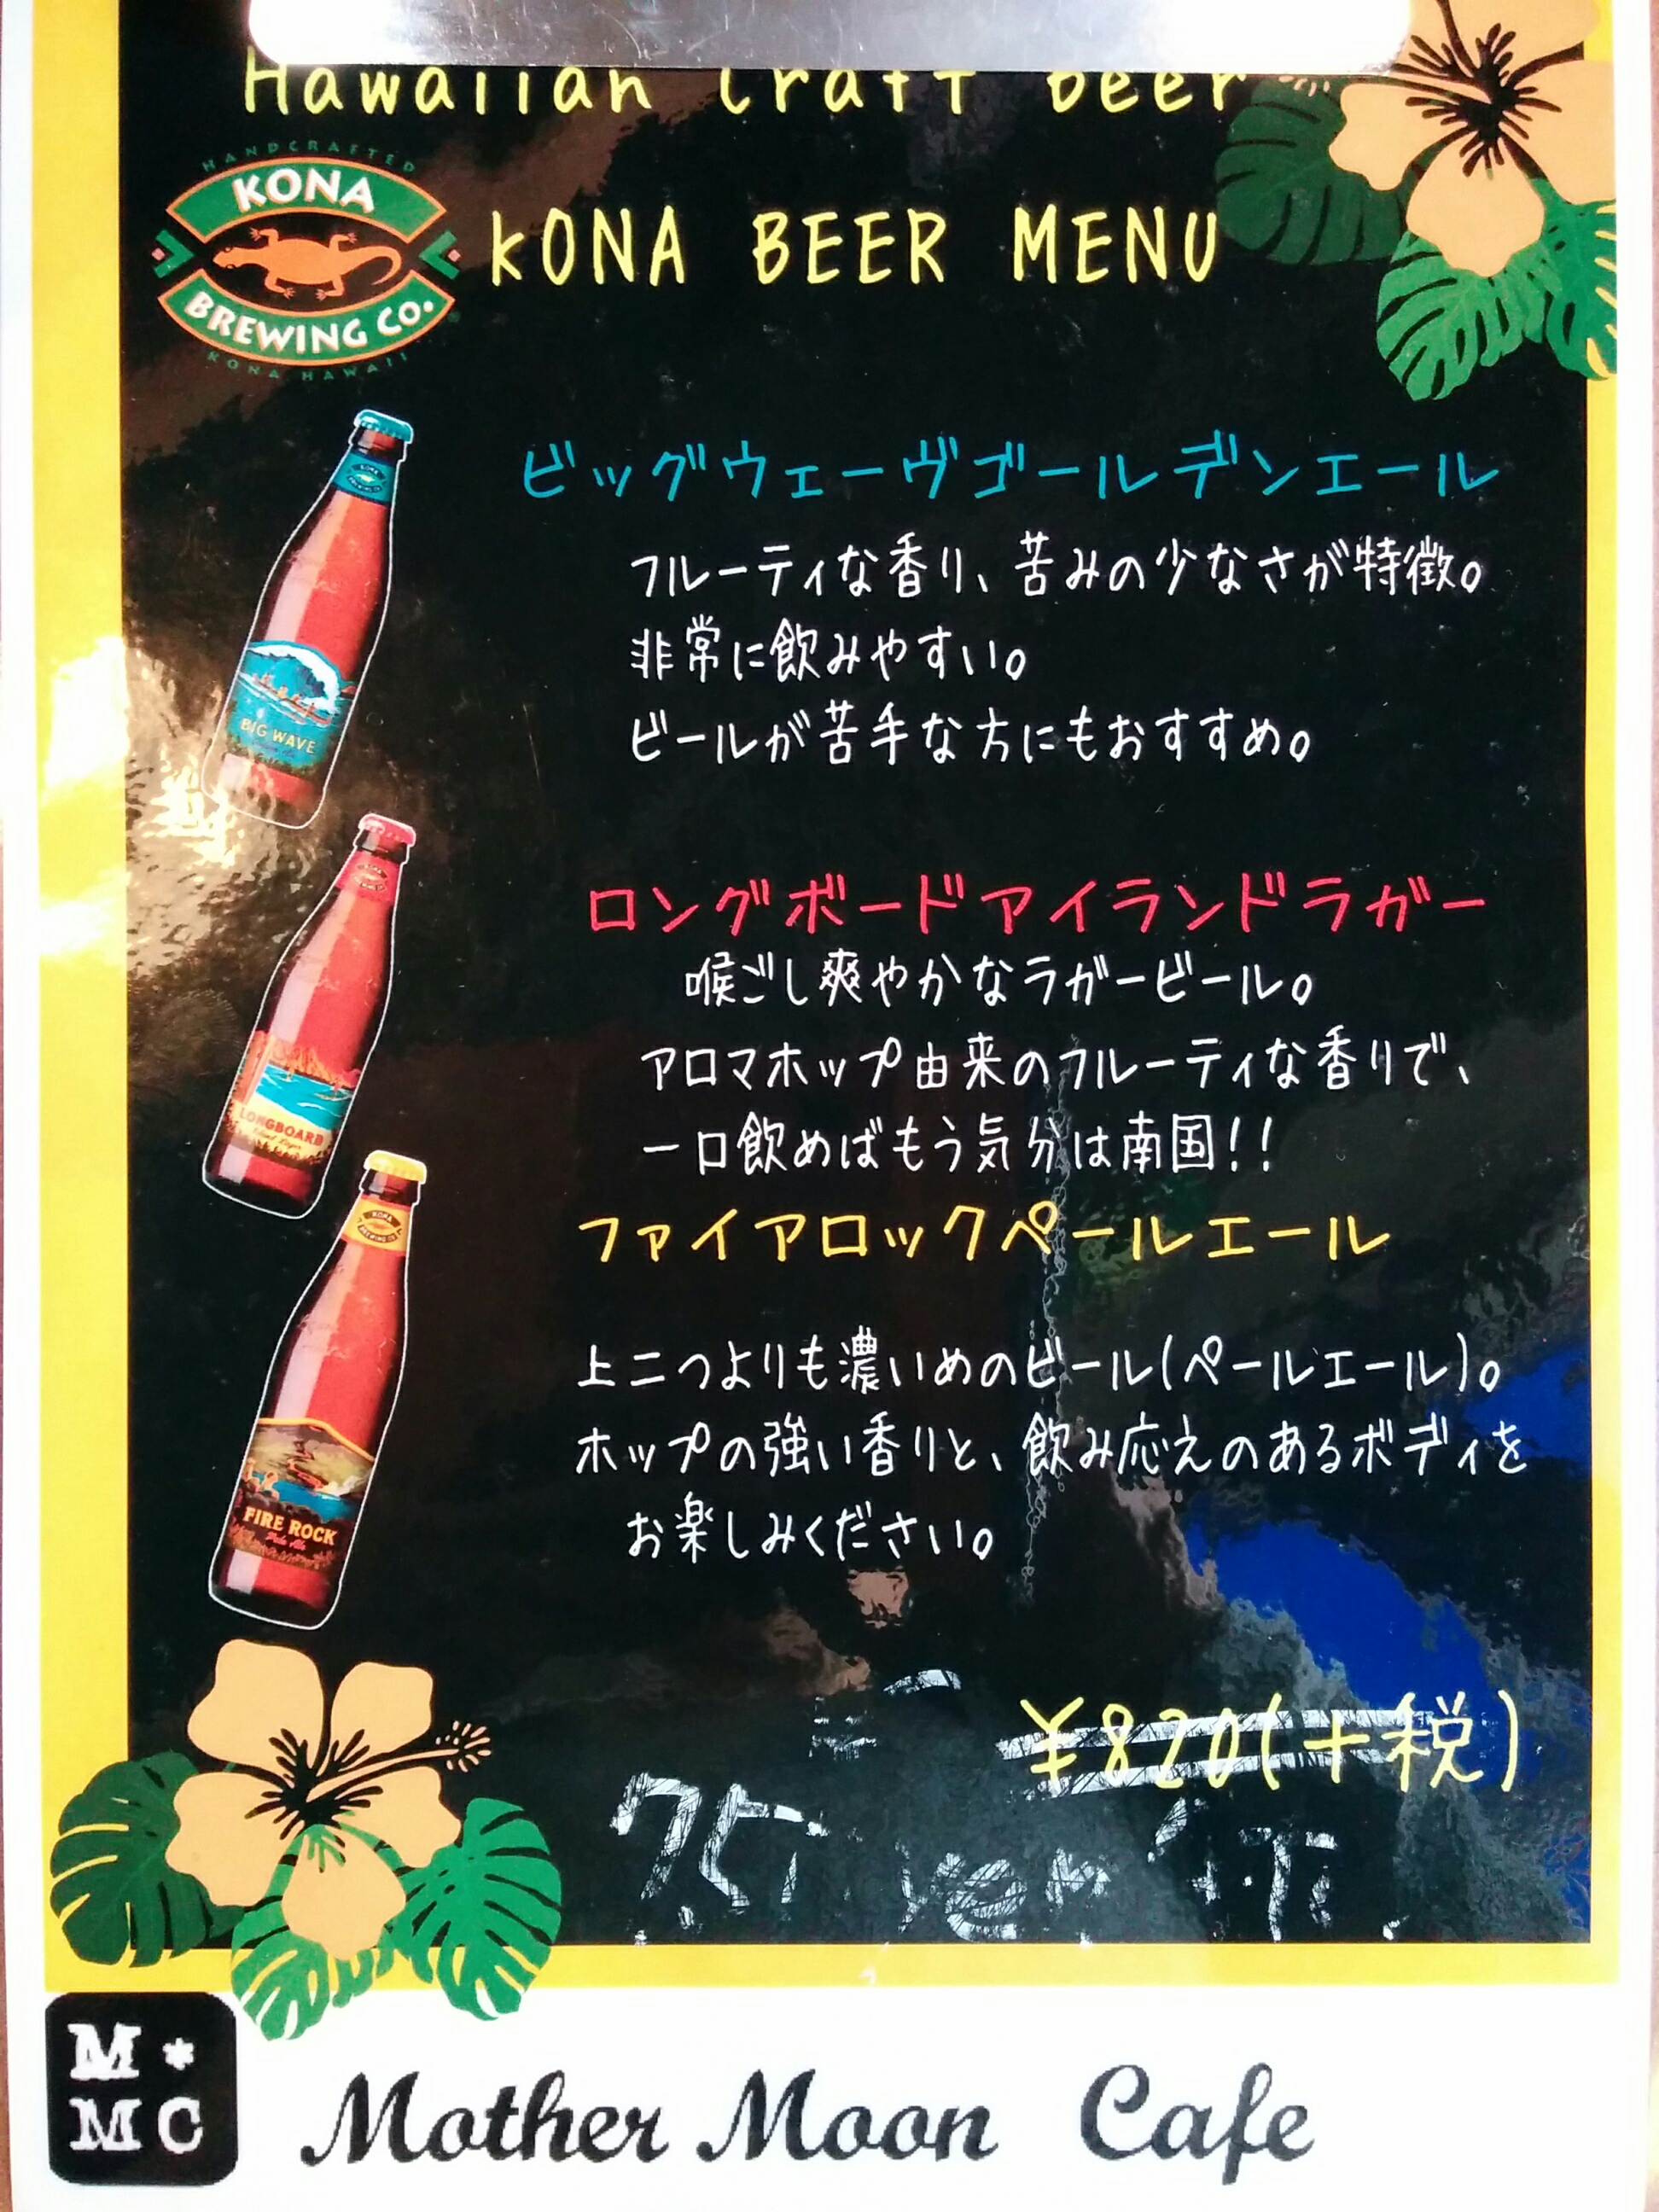 Hawaiian Craft Beer
HANDCRAFTED
KONA
BREWING CO.
KONA HAWAII
KONA BEER MENU
ビッグウェーヴゴールデンエール
フルーティな香り、苦みの少なさが特徴。
非常に飲みやすい。
ビールが苦手な方にもおすすめ。
BIG WAVE
ロングボードアイランドラガー
喉ごし爽やかなラガービール。
アロマホップ由来のフルーティな香りで、
一口飲めばもう気分は南国!!
LONGBOARD
Island Lager
ファイアロックペールエール
KONA
BREWING CO
上二つよりも濃いめのビール(ペールエール)。
ホップの強い香りと、飲み応えのあるボディを
お楽しみください。
FIRE ROCK
Pale Ale
¥820(+税)
M*
MC
Mother Moon Cafe